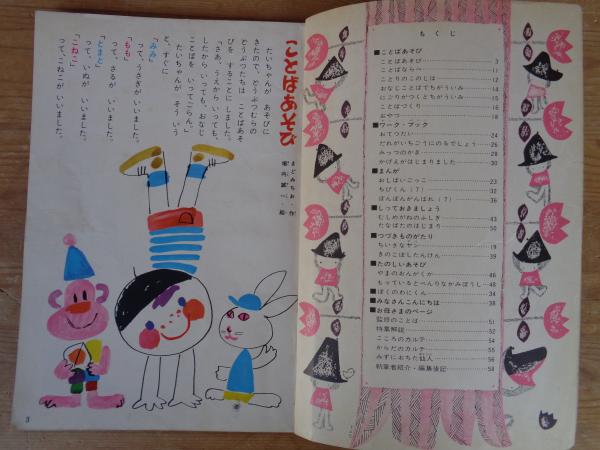 ことばあそび
まどみちお・作
堀内誠一・絵
たいちゃんが あそびに
きたので、どうぶつむらの
どうぶつたちは ことばあそ
びを することに しました。
「さあ、うえから いっても、
したから いっても、おなじ
ことばを いってごらん。」
たいちゃんが そういう
と、すぐに
「みみ」
って、うさぎが いいました。
「もも」
って、さるが いいました。
「とまと」
って、いぬが いいました。
「こねこ」
って、こねこが いいました。
3
もくじ
■ことばあそび
ことばあそび 3
ことばならべ 11
ことりのこのじは 12
おなじことばでもちがういみ 14
にごりがつくとちがういみ 16
ことばづくり 16
おやつ 18
■ワーク・ブック
おてつだい 24
だれがいちごうにのるでしょう 26
みっつのかぎ 28
かげんがはじまりました 30
■まんが
おしばいごっこ 22
ちびくん（7） 32
ぽんぽんがんばれ（7） 36
■しっておきましょう
むしめがねのふしぎ 43
たなばたのはじまり 50
■つづきものがたり
ちいさなヤン 19
きのこぼしたんけん 39
■たのしいあそび
やまのおんがくか 46
もっているとべんりなかみぼうし 48
■ぼくのわにくん 34
■みなさんこんにちは 38
■お母さまのページ
監修のことば 51
特集解説 52
こころのカルテ 54
からだのカルテ 55
みずにおちた仙人 56
執筆者紹介・編集後記 58